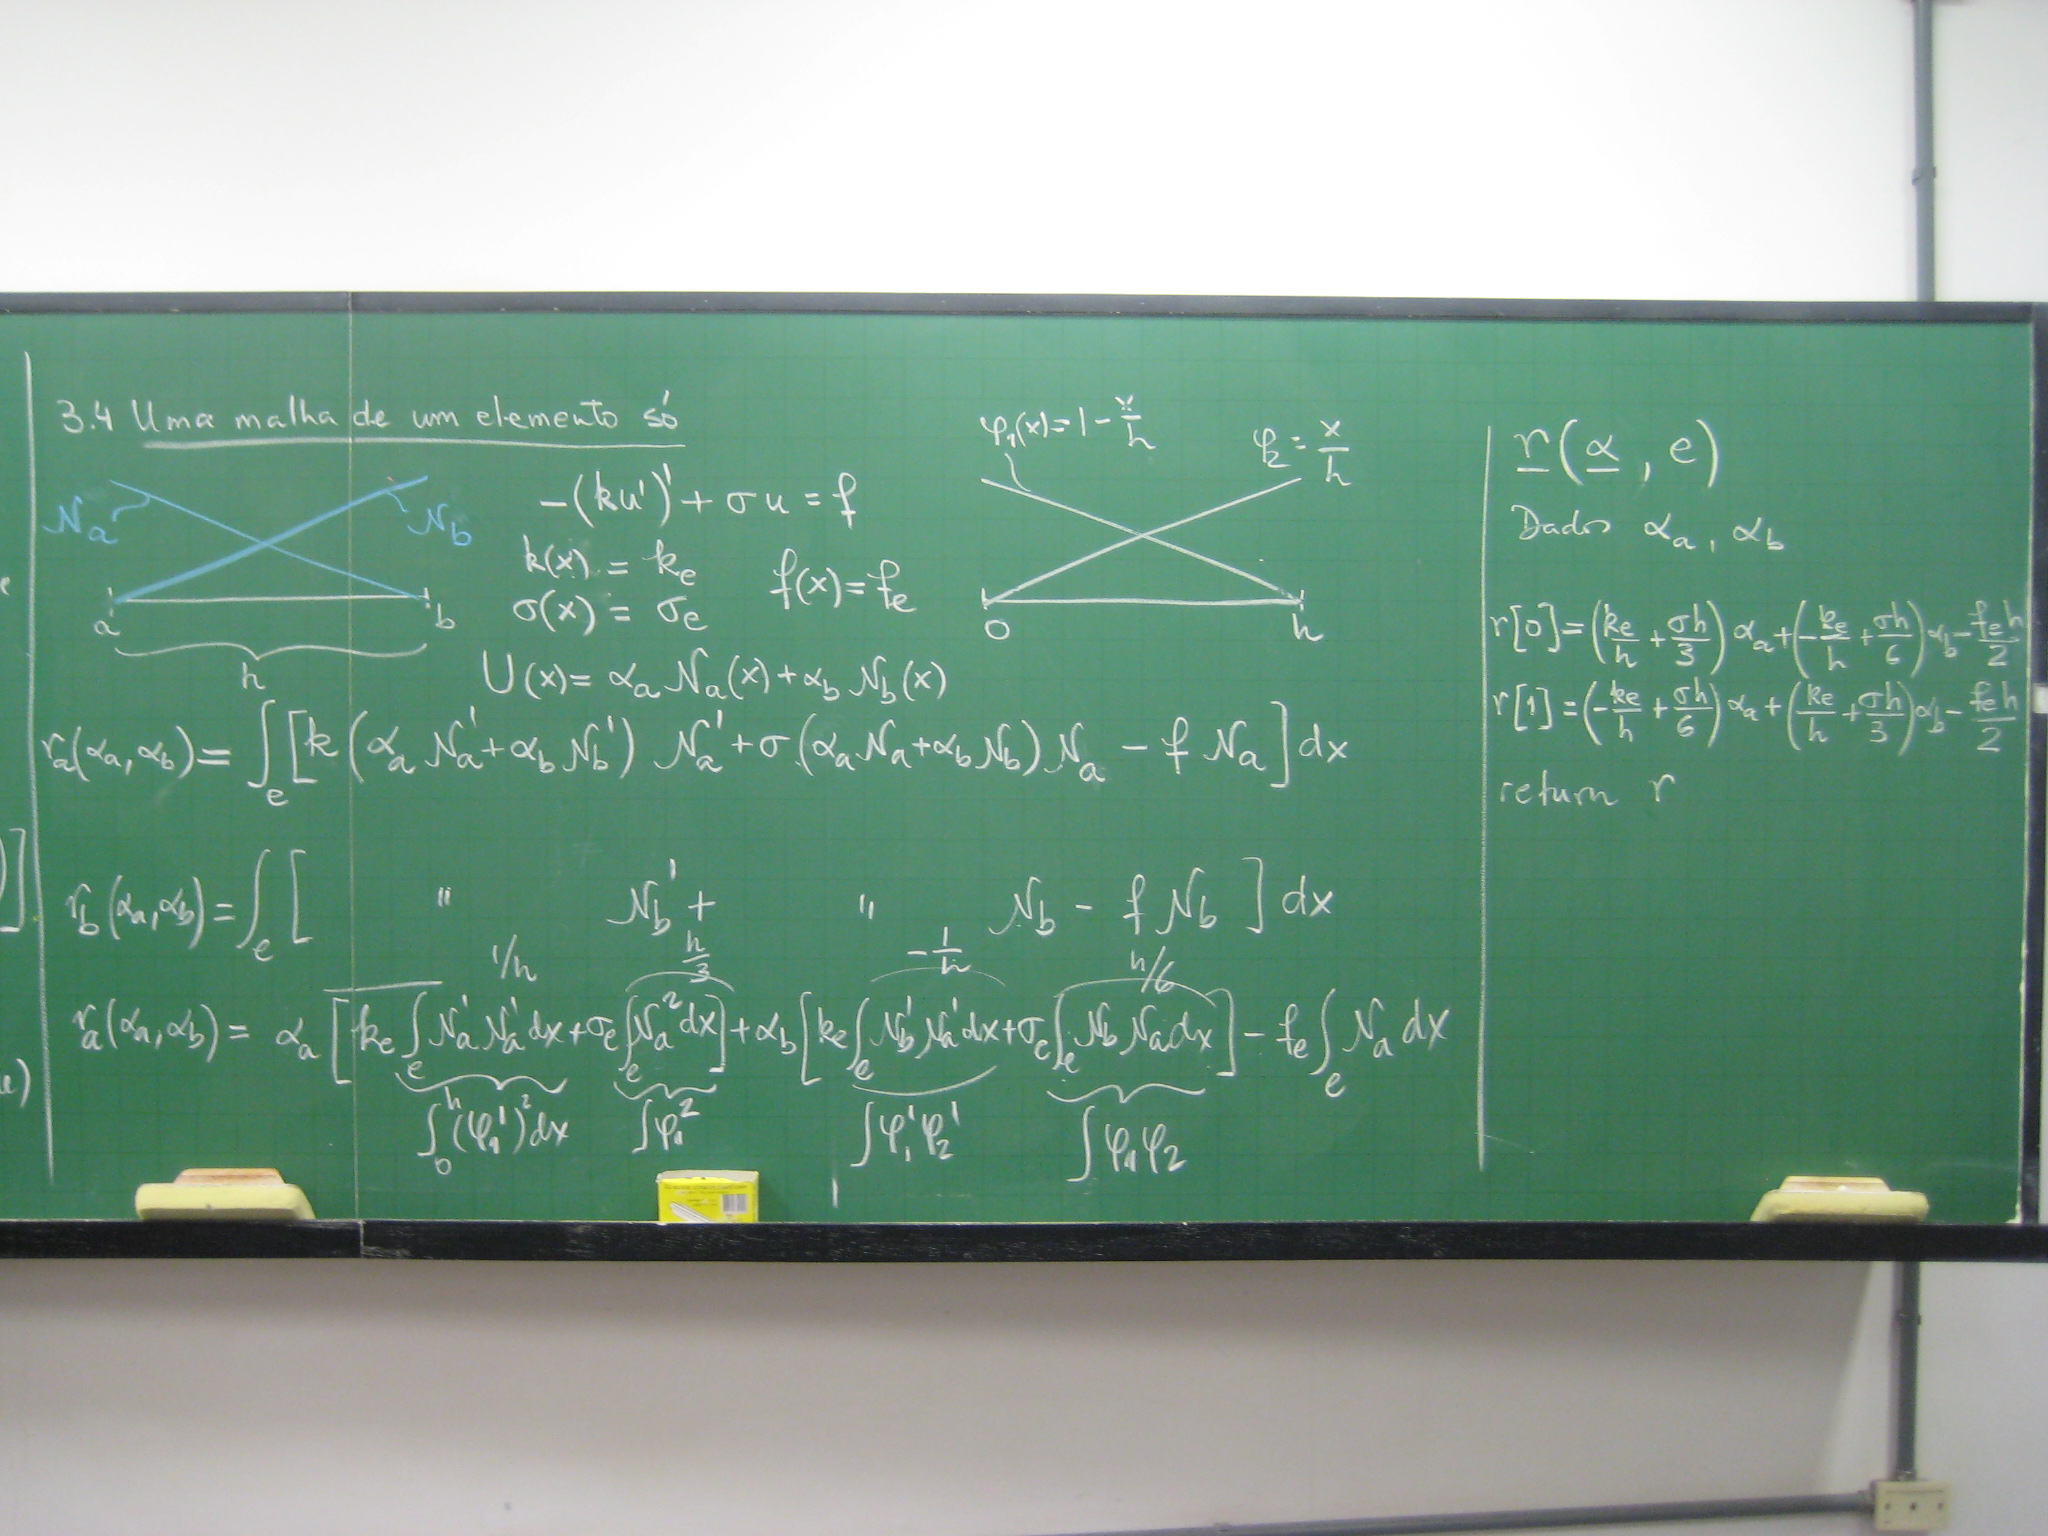 3.4 Uma malha de um elemento só
N_a
N_b
a
b
h
-(ku')' + σu = f
k(x) = k_e
f(x) = f_e
σ(x) = σ_e
U(x) = α_a N_a(x) + α_b N_b(x)
φ_1(x) = 1 - x/h
φ_2 = x/h
0
h
r_a(α_a, α_b) = ∫_e [k (α_a N_a' + α_b N_b') N_a' + σ (α_a N_a + α_b N_b) N_a - f N_a] dx
r_b(α_a, α_b) = ∫_e [ " N_b' + " N_b - f N_b ] dx
1/h
h/3
-1/h
h/6
r_a(α_a, α_b) = α_a [k_e ∫_e N_a' N_a' dx + σ_e ∫_e N_a² dx] + α_b [k_e ∫_e N_b' N_a' dx + σ_e ∫_e N_b N_a dx] - f_e ∫_e N_a dx
∫_0^h (φ_1')² dx
∫φ_1²
∫φ_1' φ_2'
∫φ_1 φ_2
r(α, e)
Dados α_a, α_b
r[0] = (k_e/h + σh/3) α_a + (-k_e/h + σh/6) α_b - f_e h/2
r[1] = (-k_e/h + σh/6) α_a + (k_e/h + σh/3) α_b - f_e h/2
return r